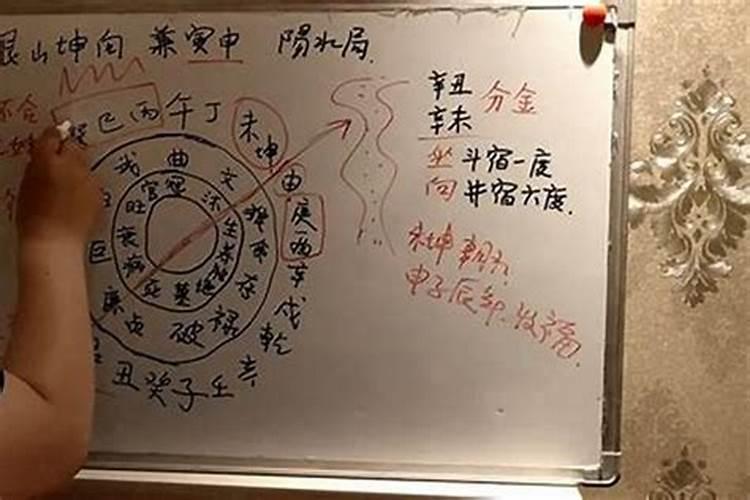 艮山坤向 兼寅申 陽水局
辛丑
辛未
分金
坐斗宿一度
向井宿六度
未坤
申子辰年 发福
巽巳丙午丁
未
坤
申
庚
酉
辛
戌
乾
亥
壬
子
癸
丑
曲
文
存
禄
破
贞
廉
巨
官
冠
沐
生
养
绝
墓
死
病
衰
旺